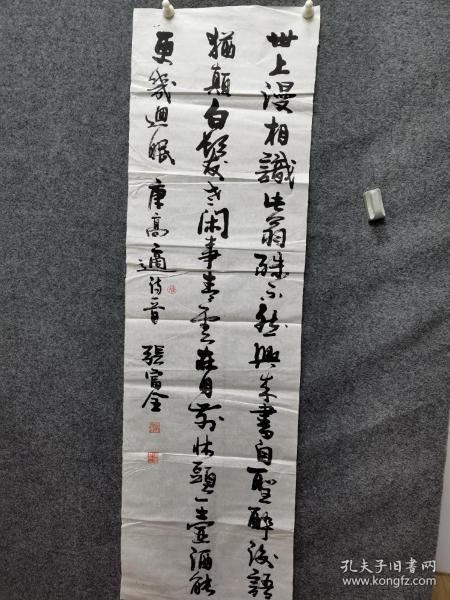 世上漫相識此翁殊不然興来書自聖醉後語
猶顛白髪老闲事青雲在目前床頭一壶酒能
更幾迴眠 唐高適诗一首 張富全
孔夫子旧书网
www.kongfz.com